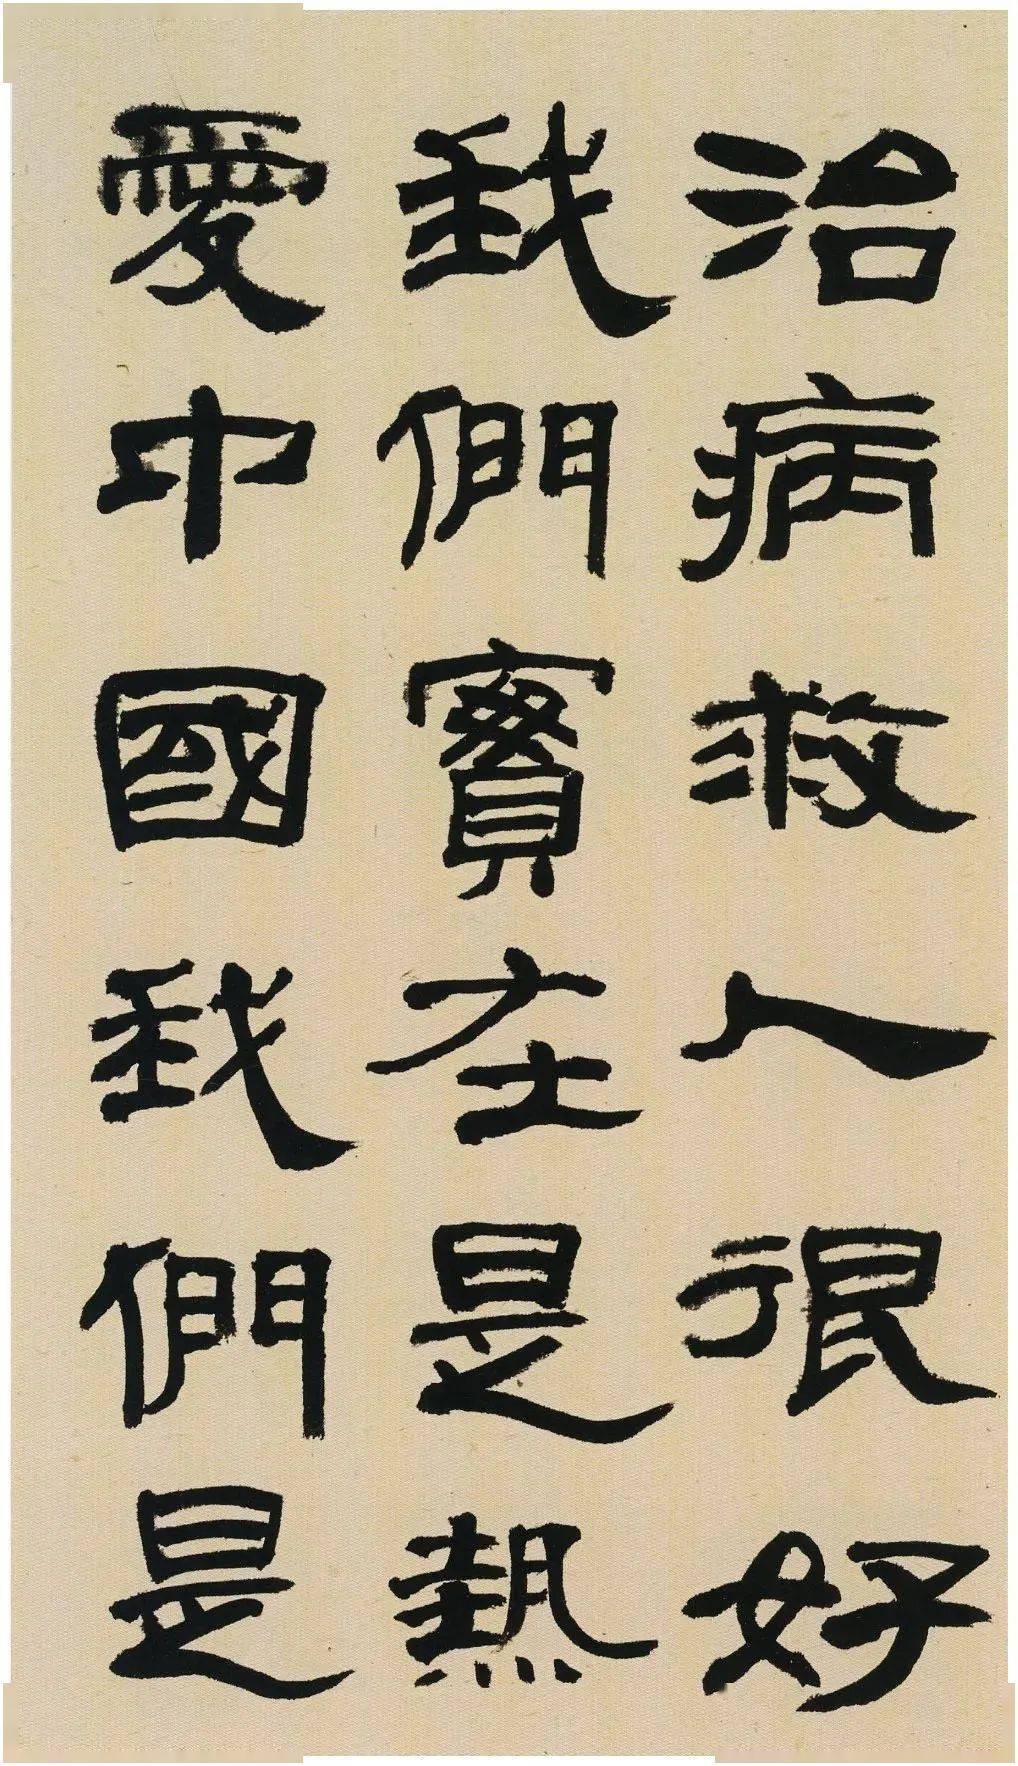 治病救人很好
我們實在是熱
愛中國我們是